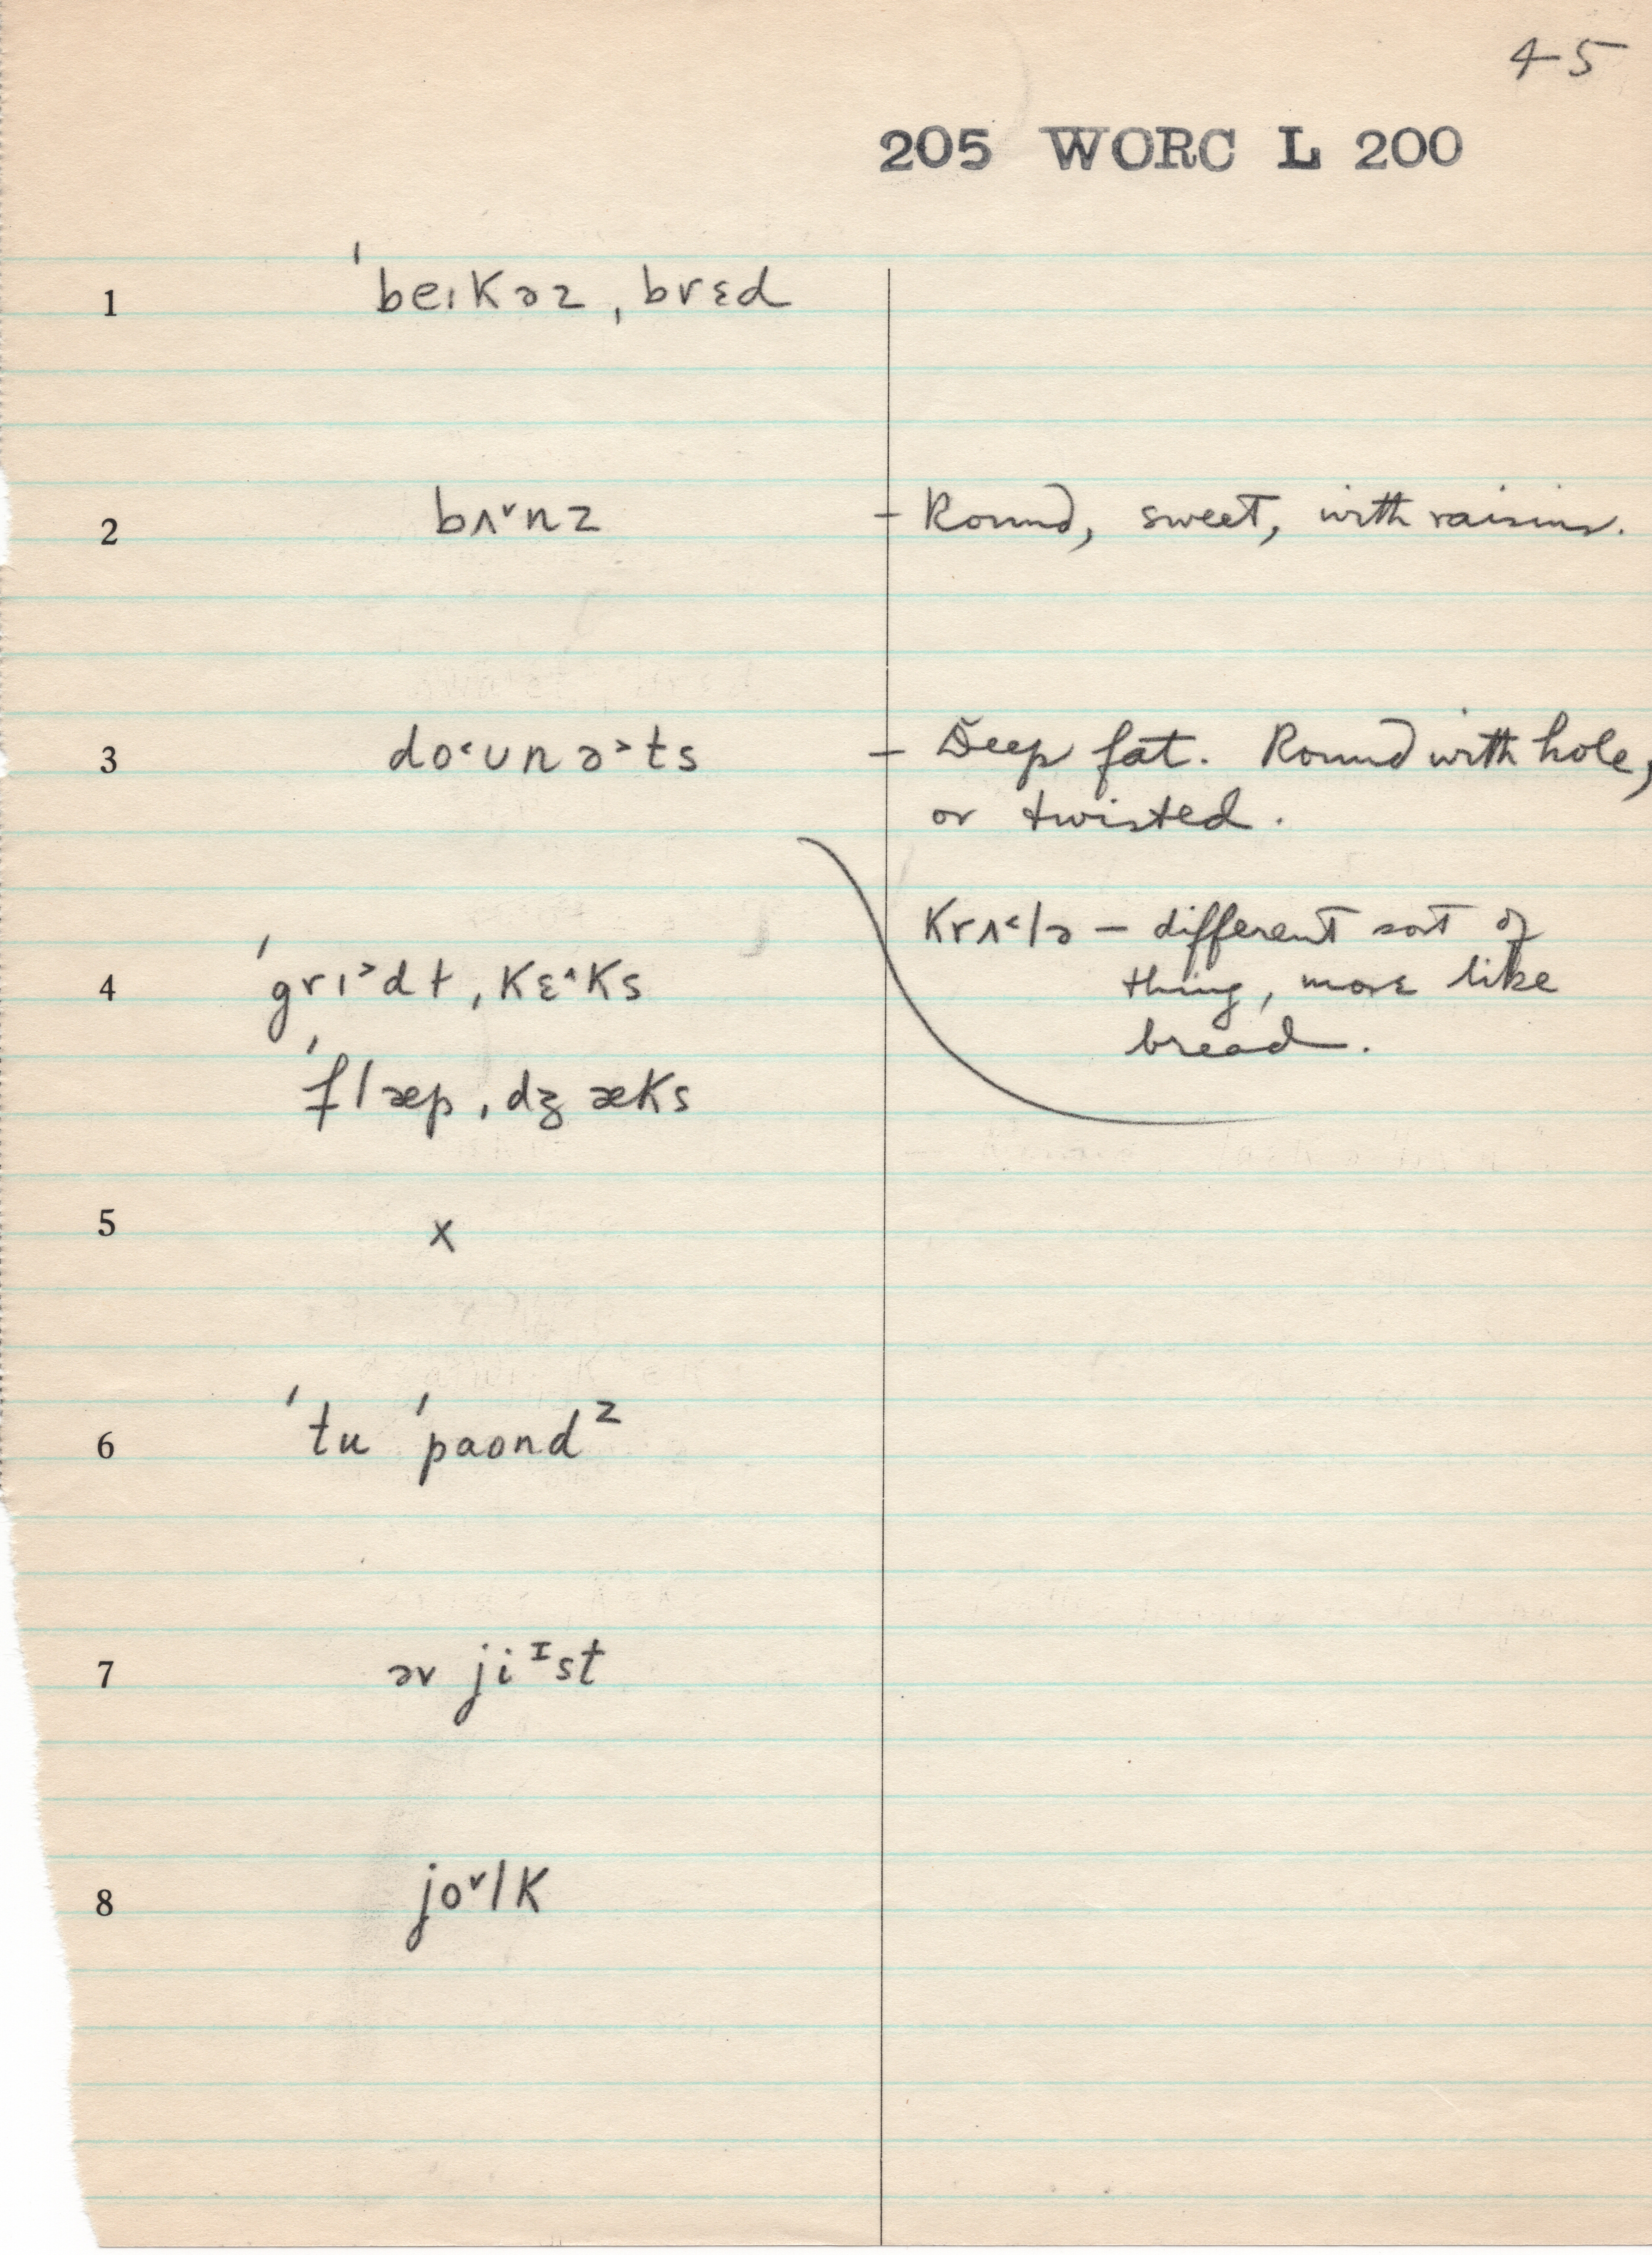 45
205 WORC L 200
1 ˈbeɪkəz ˌbrɛd
2 bʌ˅nz – Round, sweet, with raisins.
3 do˂ʊnə˃ts – Deep fat. Round with hole,
or twisted.
krʌ˂lə – different sort of
thing, more like
bread.
4 ˈgrɪ˃dḷ ˌkɛ˄ks
ˈflæp ˌdʒæks
5 x
6 ˈtu ˈpaʊndᶻ
7 əv jiᴵst
8 jo˅lk